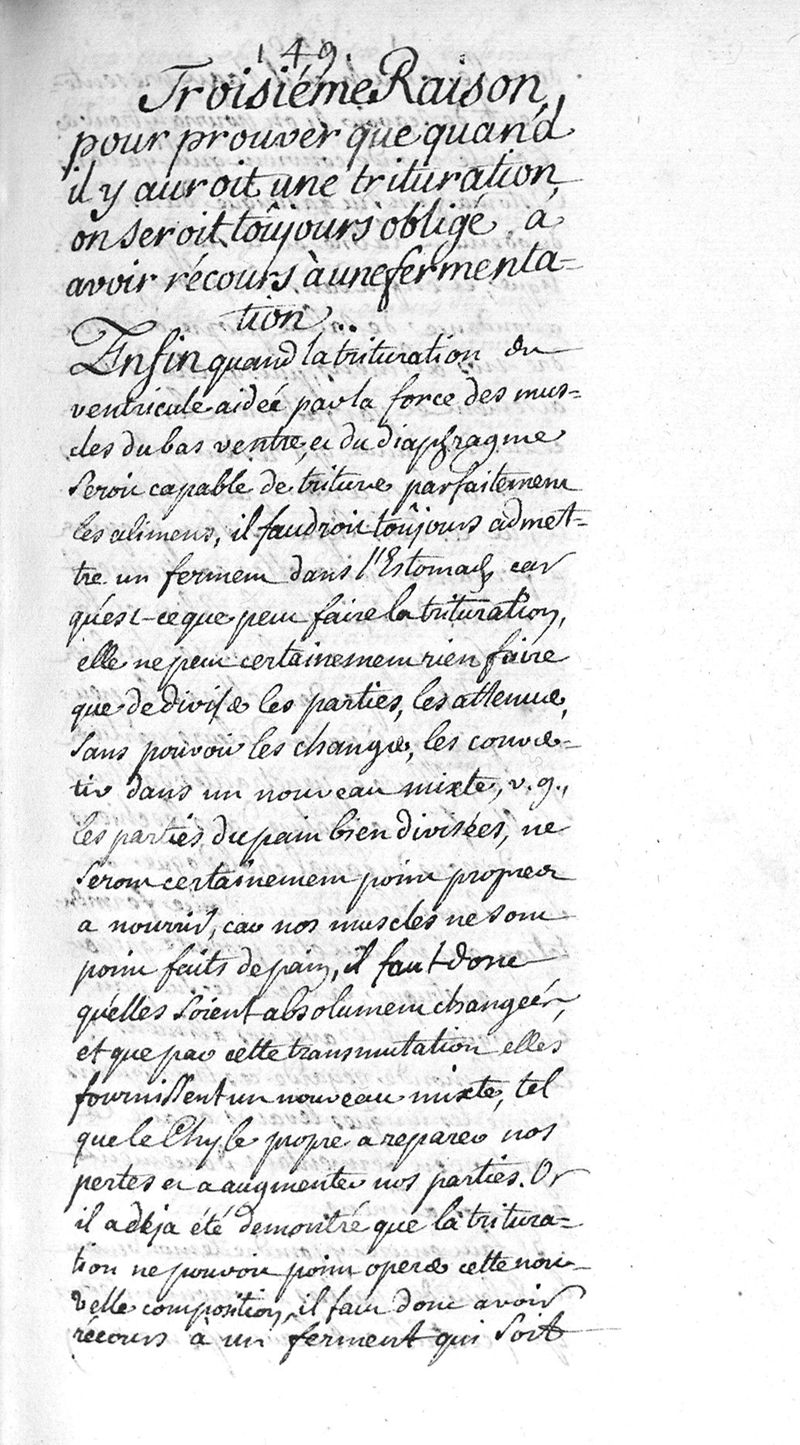 149.
Troisiéme Raison,
pour prouver que quand
il y auroit une trituration,
on seroit toûjours obligé à
avoir récours à une fermenta=
tion..
Enfin quand la trituration du
ventricule aideé par la force des mus=
cles du bas ventre, et du diaphragme
seroit capable de triturer parfaitement
les alimens, il faudroit toûjours admet=
tre un ferment dans l'Estomach car
qu'est-ce que peut faire la trituration,
elle ne peut certainement rien faire
que de diviser les parties, les attenuer,
sans pouvoir les changer, les conver=
tir dans un nouveau mixte, v. g.,
les parties du pain bien divisées, ne
seront certainement point propres
a nourrir, car nos muscles ne sont
point faits de pain, il faut donc
qu'elles soient absolument changeés,
et que par cette transmutation elles
fournissent un nouveau mixte, tel
que le Chyle propre a reparer nos
pertes et a augmenter nos parties. Or
il a deja été demontré que la tritura=
tion ne pouvoit point operer cette nou=
velle composition, il faut donc avoir
récours à un ferment qui soit